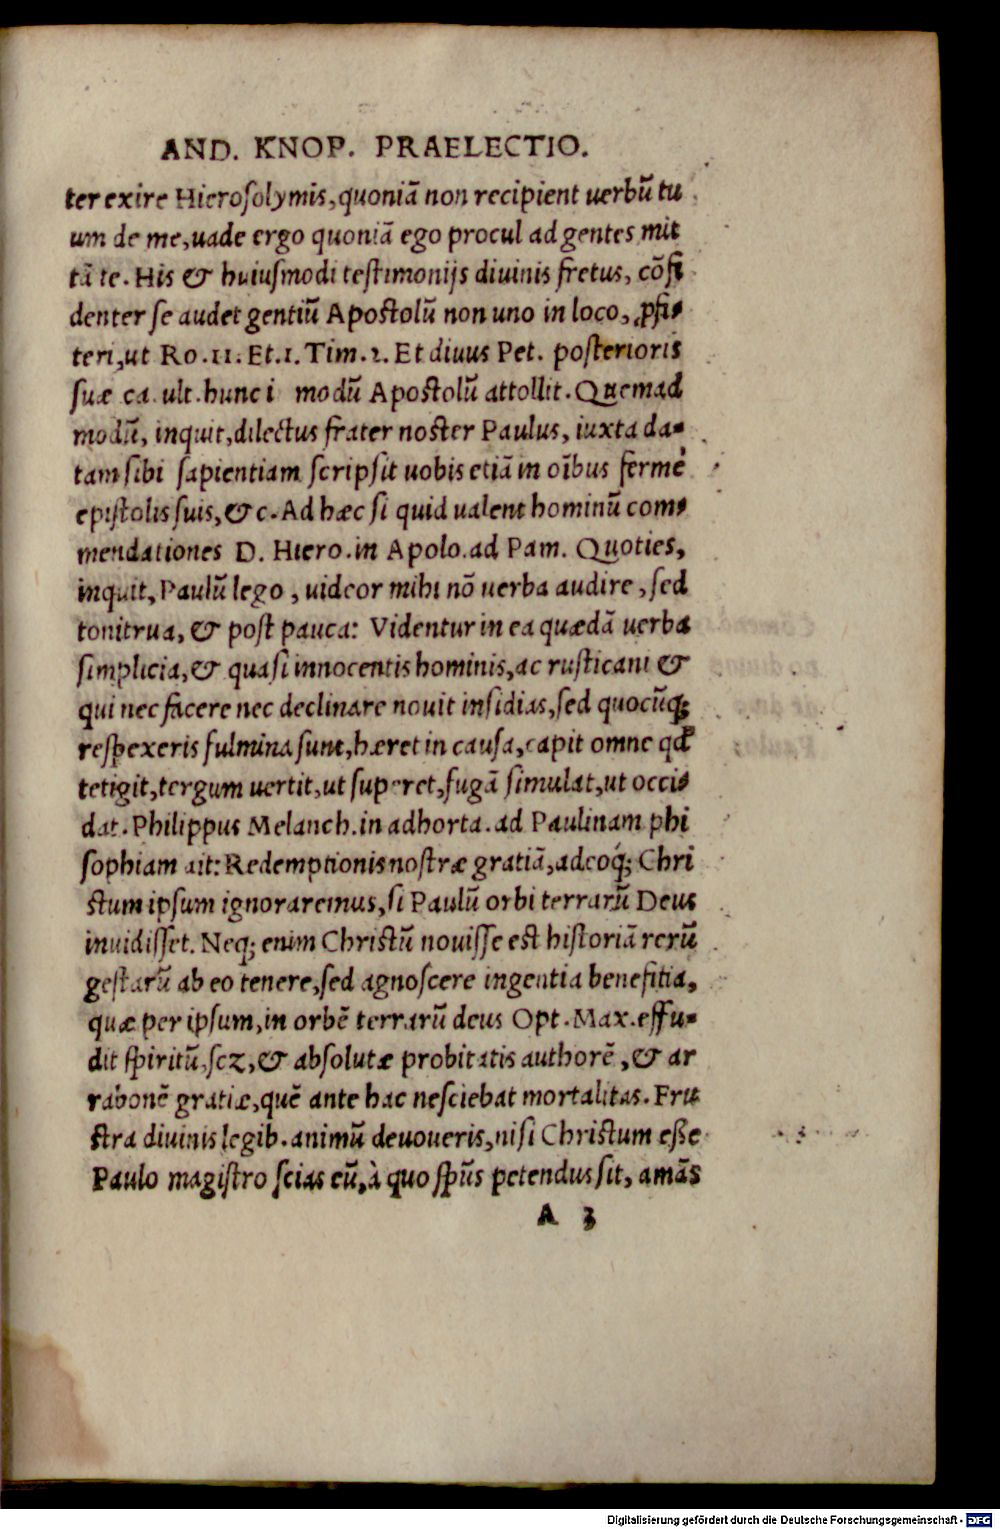 AND. KNOP. PRAELECTIO.
ter exire Hierosolymis, quoniā non recipient uerbū tu
um de me, uade ergo quoniā ego procul ad gentes mit
tā te. His & huiusmodi testimonijs diuinis fretus, cōfi
denter se audet gentiū Apostolū non uno in loco, ꝓfi-
teri, ut Ro. 11. Et. 1. Tim. 2. Et diuus Pet. posterioris
suæ ca. ult. hunc i modū Apostolū attollit. Quemad
modū, inquit, dilectus frater noster Paulus, iuxta da-
tam sibi sapientiam scripsit uobis etiā in oībus fermè
epistolis suis, & c. Ad hæc si quid ualent hominū com-
mendationes D. Hiero. in Apolo. ad Pam. Quoties,
inquit, Paulū lego, uideor mihi nō uerba audire, sed
tonitrua, & post pauca: Videntur in ea quædā uerba
simplicia, & quasi innocentis hominis, ac rusticani &
qui nec facere nec declinare nouit insidias, sed quocūq;
respexeris fulmina sunt, hæret in causa, capit omne qđ
tetigit, tergum uertit, ut superet, fugā simulat, ut occi-
dat. Philippus Melanch. in adhorta. ad Paulinam phi
sophiam ait: Redemptionis nostræ gratiā, adeoq́; Chri
stum ipsum ignoraremus, si Paulū orbi terrarū Deus
inuidisset. Neq; enim Christū nouisse est historiā rerū
gestarū ab eo tenere, sed agnoscere ingentia benefitia,
quæ per ipsum, in orbē terrarū deus Opt. Max. effu-
dit spiritū, scz, & absolutæ probitatis authorē, & ar
rabonē gratiæ, quē ante hac nesciebat mortalitas. Fru
stra diuinis legib. animū deuoueris, nisi Christum esse
Paulo magistro scias eū, à quo spūs petendus sit, amās
A 3
Digitalisierung gefördert durch die Deutsche Forschungsgemeinschaft - DFG